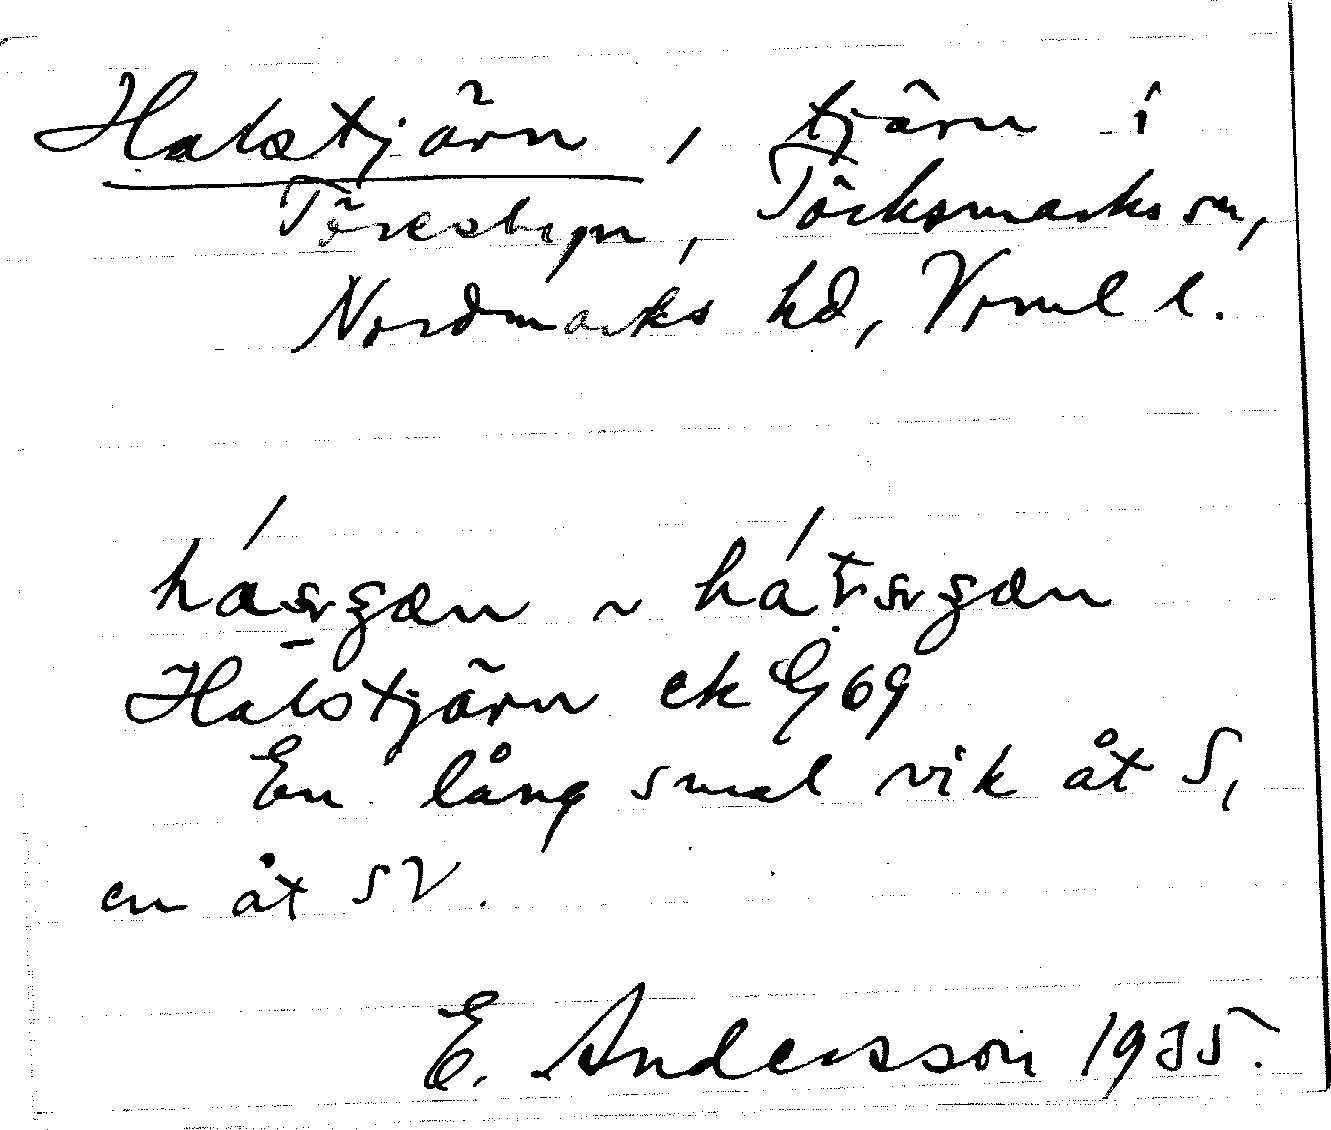 Halstjärn, tjärn i
Töresbyn, Töcksmarks sn,
Nordmarks hd, Vrml l.
Halstjärn ek G 69
En lång smal vik åt S,
en åt SV.
E. Andersson 1935.